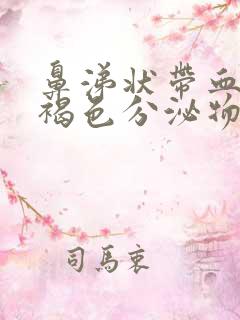 鼻涕状帶血
褐色分泌物
司馬衷